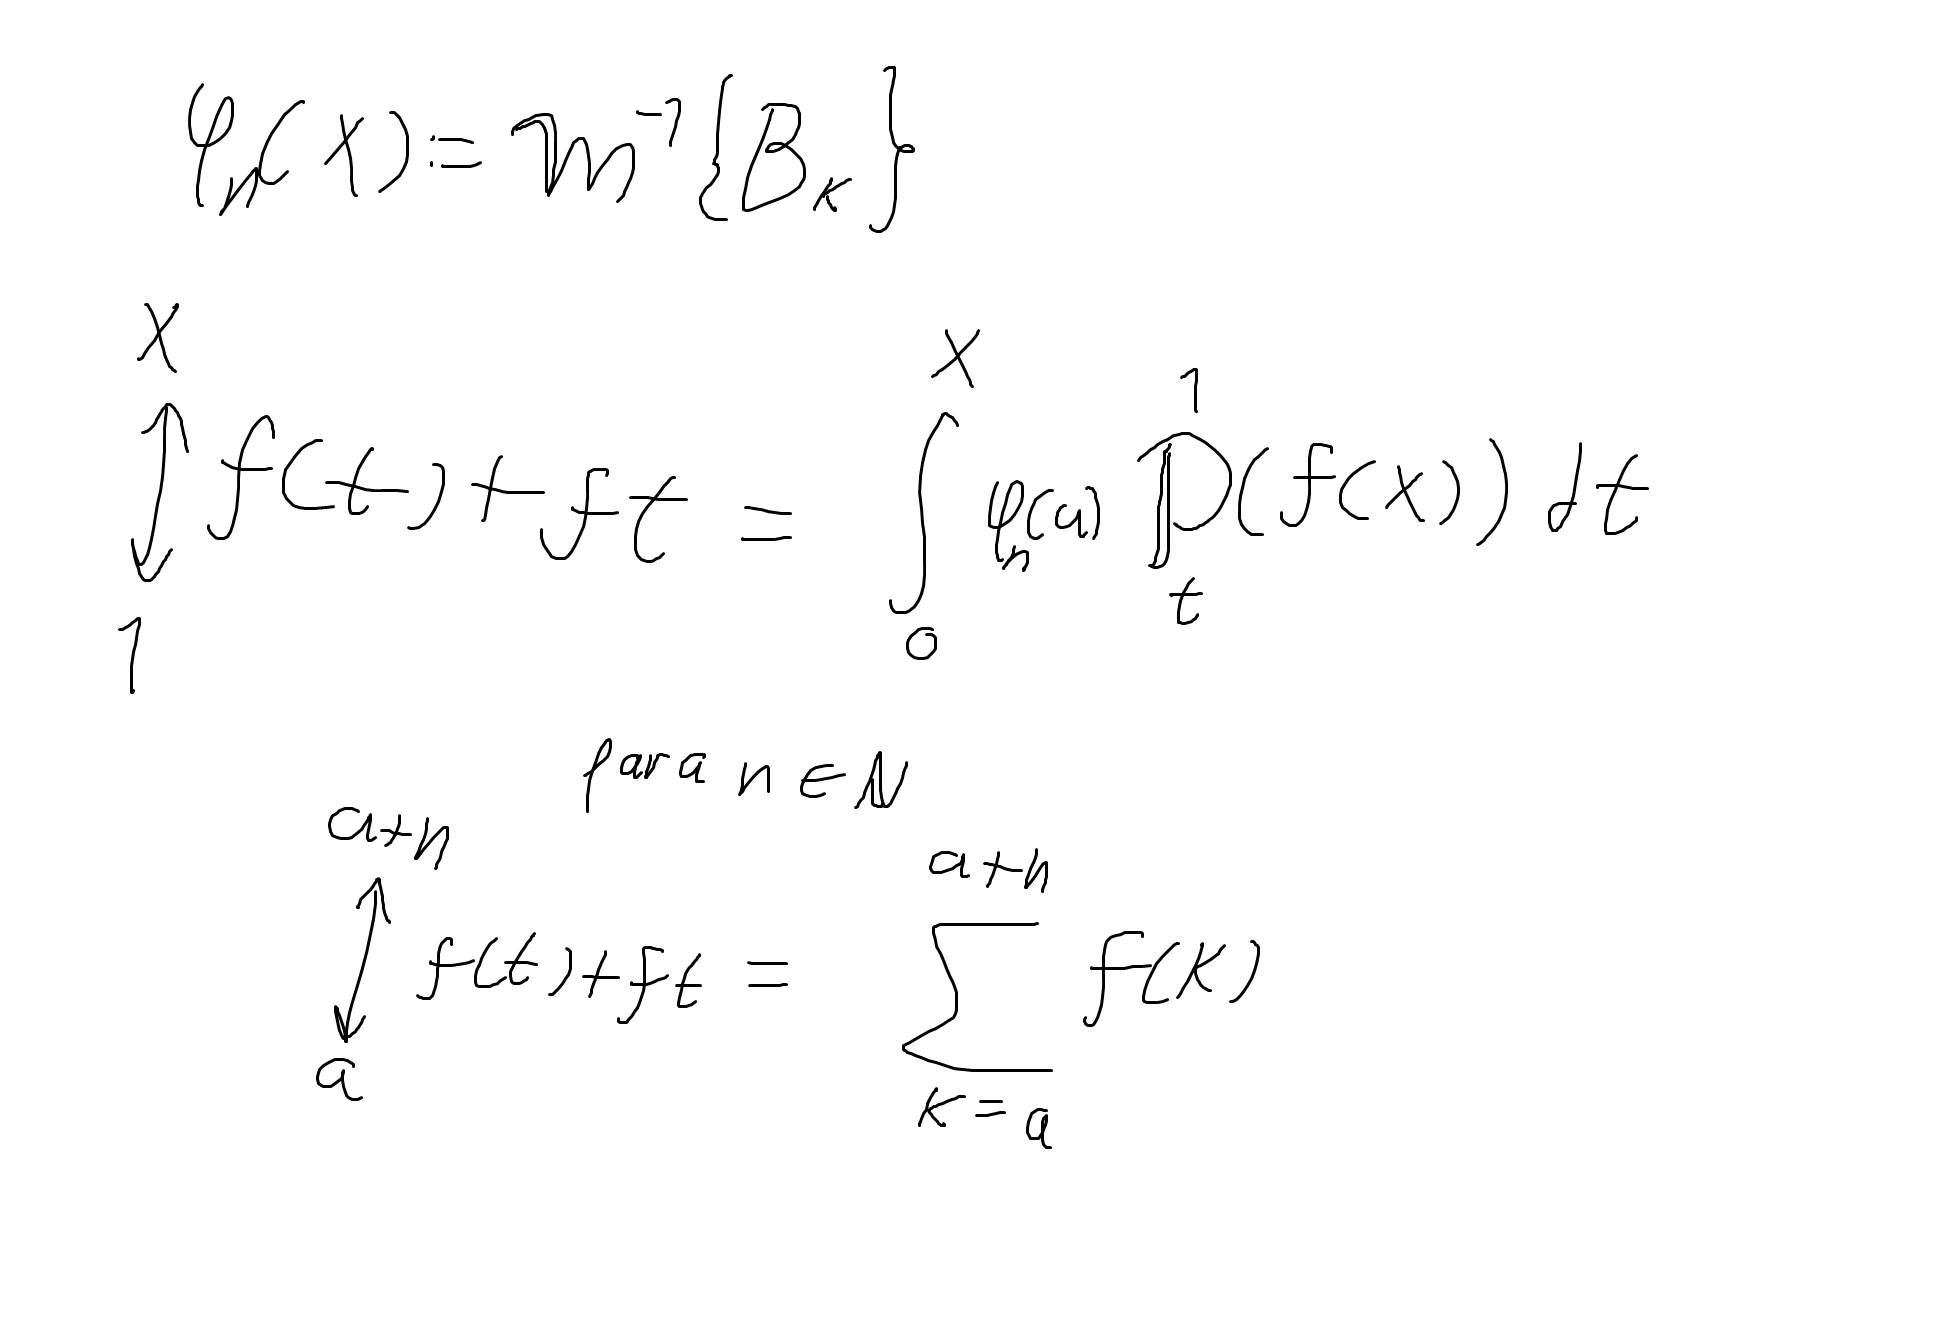 φₙ(x) := m⁻¹{Bₖ}
↕₁ˣ f(t) + ft = ∫₀ˣ φₙ(a) ℙₜ¹(f(x)) dt
para n ∈ ℕ
↕ₐᵃ⁺ⁿ f(t) + ft = ∑ₖ₌ₐᵃ⁺ⁿ f(k)